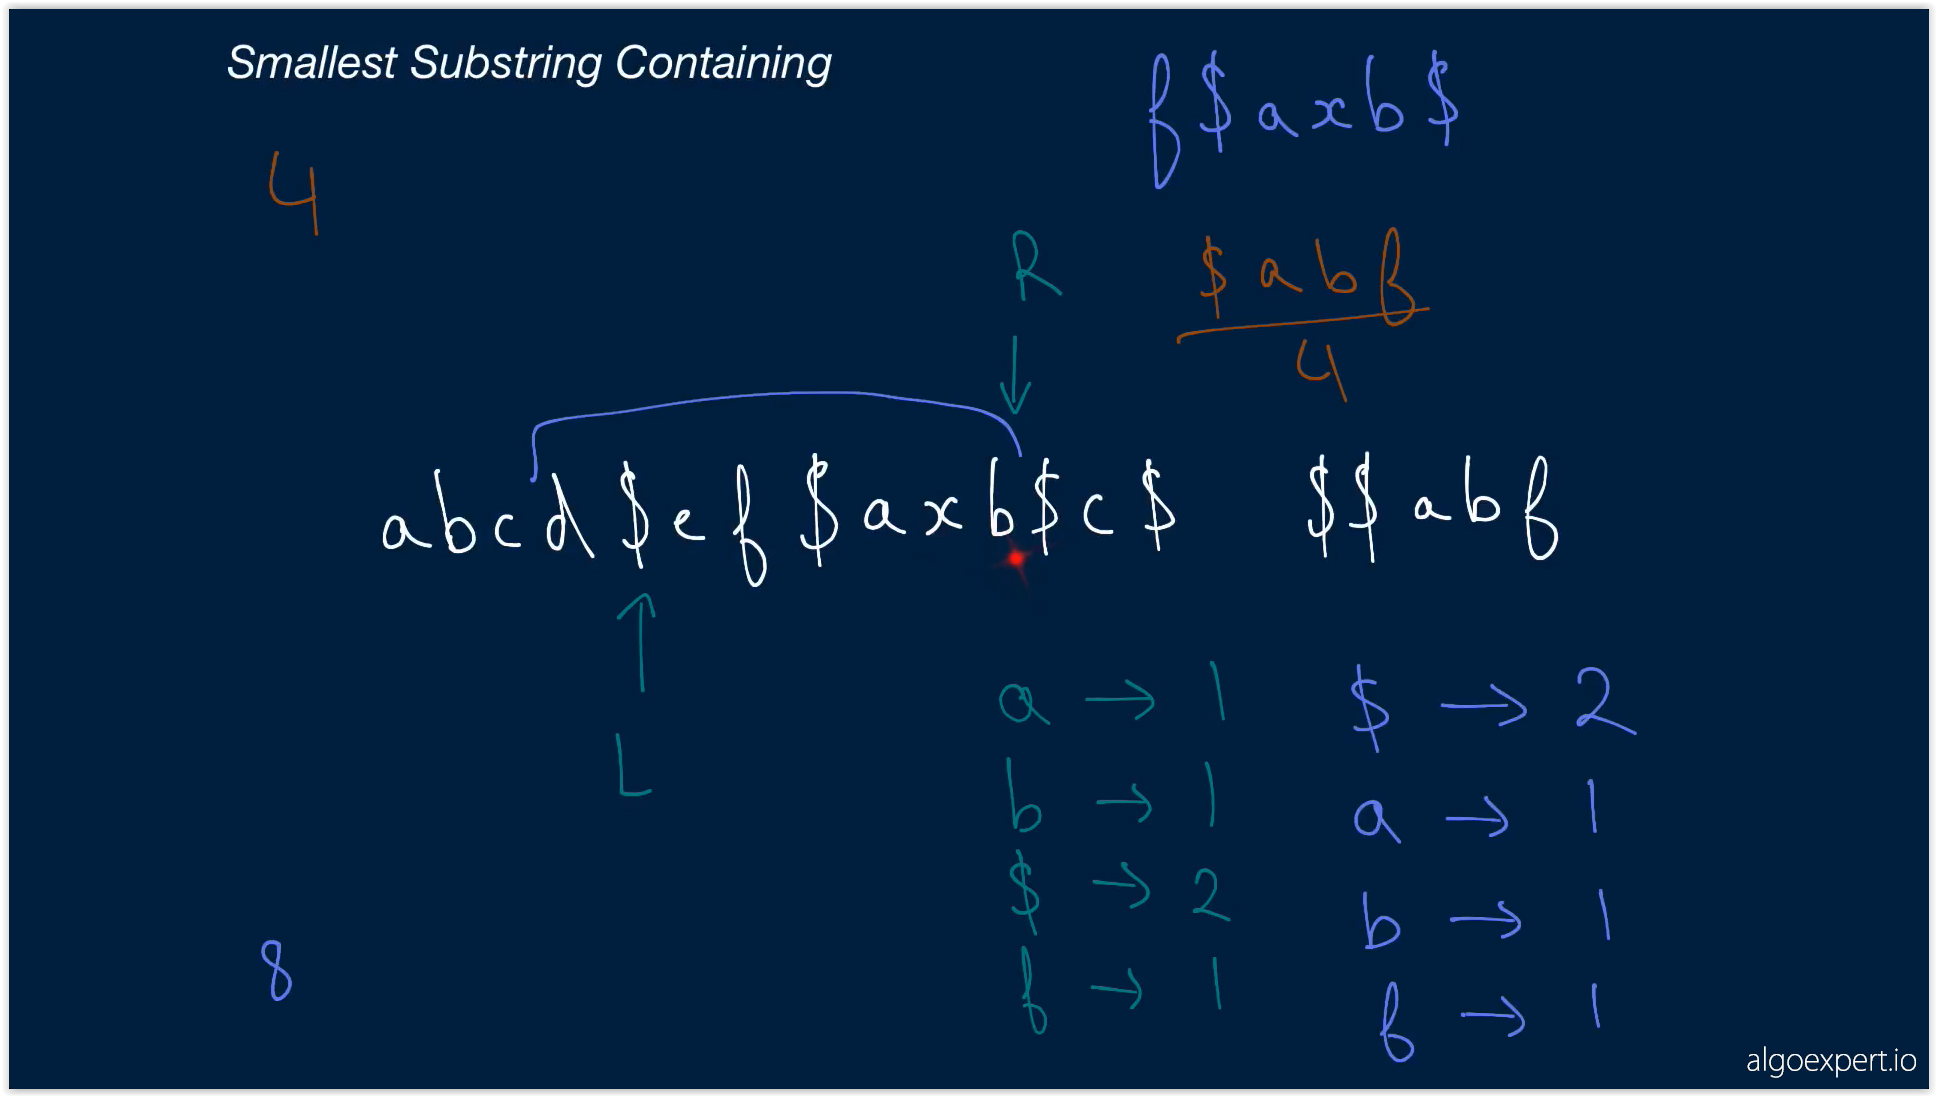 Smallest Substring Containing
f$axb$
4
R
$abf
4
abcd$ef$axb$c$ $$abf
L
a → 1
b → 1
$ → 2
f → 1
$ → 2
a → 1
b → 1
f → 1
8
algoexpert.io